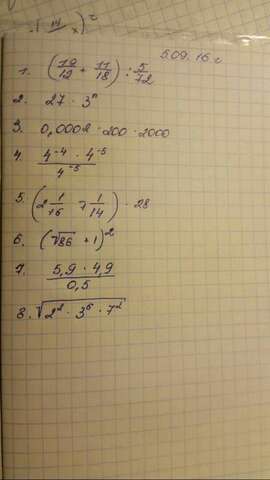 5.09.16 г
1. (19/12 + 11/18) : 5/72
2. 27 · 3ⁿ
3. 0,0002 · 200 · 2000
4. 4⁻⁴ · 4⁻⁵ / 4⁻⁵
5. (2 1/16 7 1/14) · 28
6. (√86 + 1)²
7. 5,9 · 4,9 / 0,5
8. √2² · 3⁶ · 7²